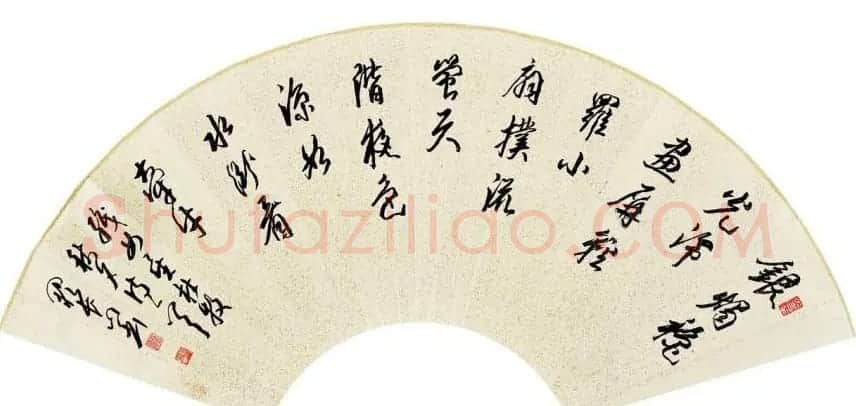 銀燭穐
光冷
畫屏輕
羅小
扇撲流
螢天
階夜色
涼如
水卧看
牽牛
織女星杜牧
Shufaziliao.COM